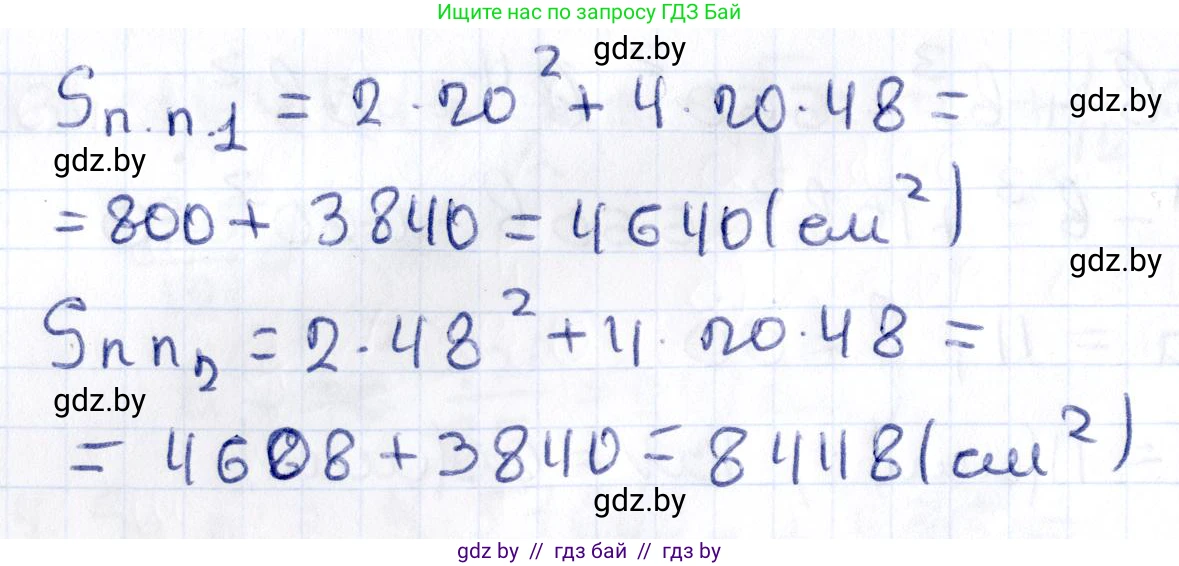 Ищите нас по запросу ГДЗ Бай
gdz.by
Sп.п.1 = 2 · 20² + 4 · 20 · 48 =
gdz.by
gdz.by
= 800 + 3840 = 4640 (см²)
gdz.by
Sпп₂ = 2 · 48² + 4 · 20 · 48 =
gdz.by
= 4608 + 3840 = 8448 (см²)
gdz.by
gdz by // гдз бай // гдз by